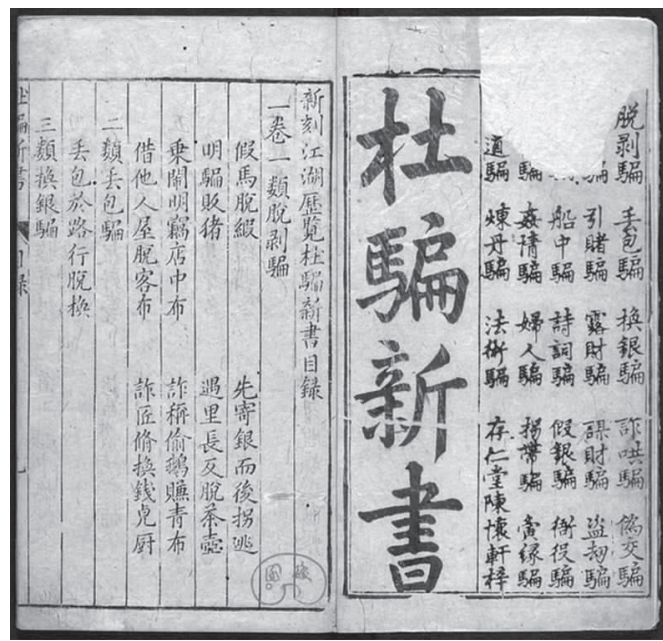 脫剝騙 丟包騙 換銀騙 詐哄騙 偽交騙
騙 引賭騙 露財騙 謀財騙 盜劫騙
船中騙 詩詞騙 假銀騙 衙役騙
騙 姦情騙 婦人騙 拐帶騙 緣騙
道騙 煉丹騙 法術騙 存仁堂陳懷軒梓
杜騙新書
新刻江湖歷覽杜騙新書目錄
一卷一類脫剝騙
假馬脫緞 先寄銀而後拐逃
明騙販猪 遇里長反脫茶壺
乘鬧明竊店中布 詐稱偷鵝賺青布
借他人屋脫客布 詐匠脩換錢厨
二類丟包騙
丟包於路行脫換
三類換銀騙
杜騙新書 目錄